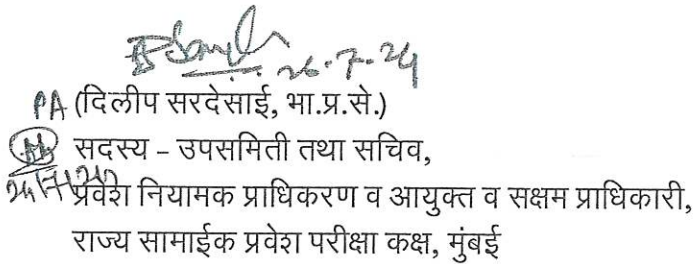 26.7.24
PA (दिलीप सरदेसाई, भा.प्र.से.)
सदस्य – उपसमिती तथा सचिव,
प्रवेश नियामक प्राधिकरण व आयुक्त व सक्षम प्राधिकारी,
राज्य सामाईक प्रवेश परीक्षा कक्ष, मुंबई